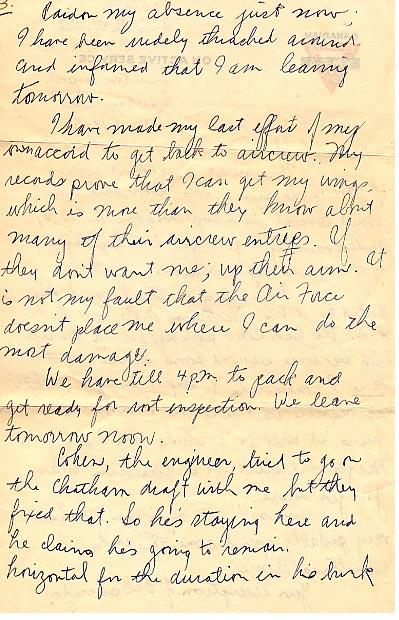 3.
Pardon my absence just now;
I have been rudely thrashed around
and informed that I am leaving
tomorrow.
I have made my last effort of my
own accord to get back to aircrew. My
records prove that I can get my wings,
which is more than they know about
many of their aircrew entries. If
they dont want me; up their arm. It
is not my fault that the Air Force
doesn't place me where I can do the
most damage.
We have till 4 p.m. to pack and
get ready for inspection. We leave
tomorrow noon.
Cohen, the engineer, tried to go on
the Chatham draft with me but they
fixed that. So he's staying here and
he claims he's going to remain
horizontal for the duration in his bunk